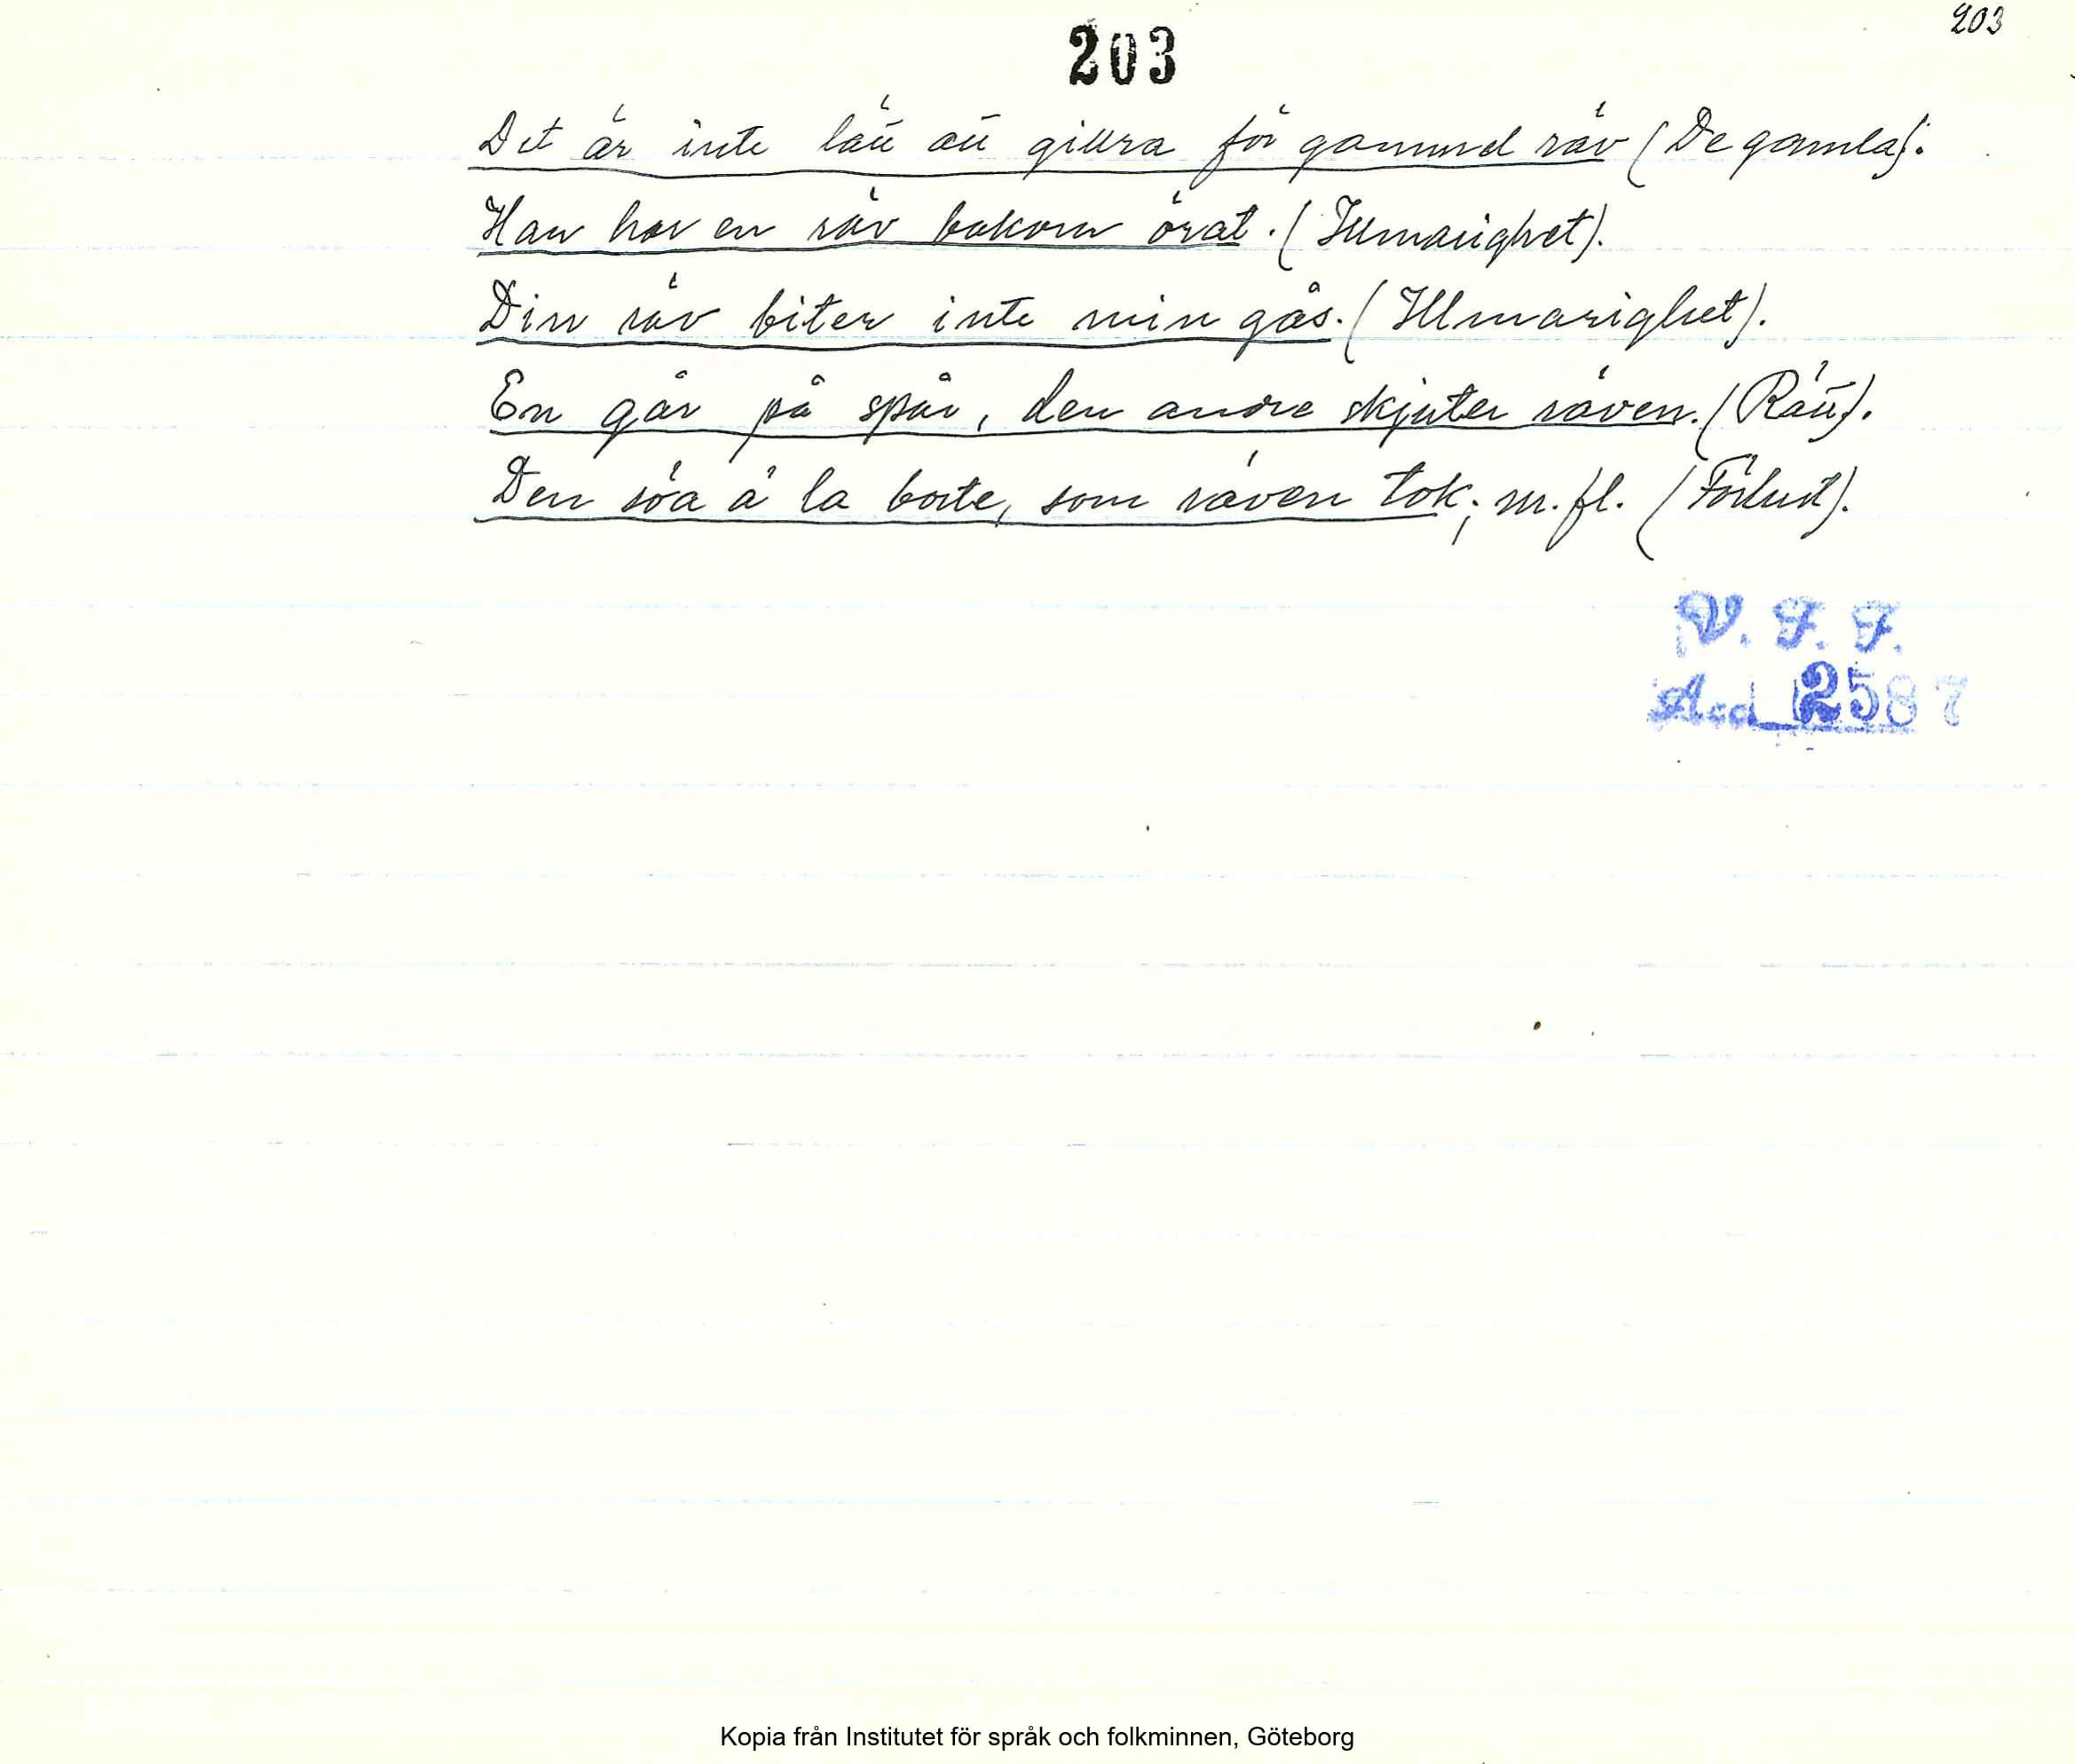 203
203
Det är inte lätt att gillra för gammel räv (De gamla).
Han har en räv bakom örat. (Illmarighet).
Din räv biter inte min gås. (Illmarighet).
En går på spår, den andre skjuter räven. (Rätt).
Den söa ä la borte, som räven tok; m. fl. (Förlust).
V. F. F.
Acc 2587
Kopia från Institutet för språk och folkminnen, Göteborg